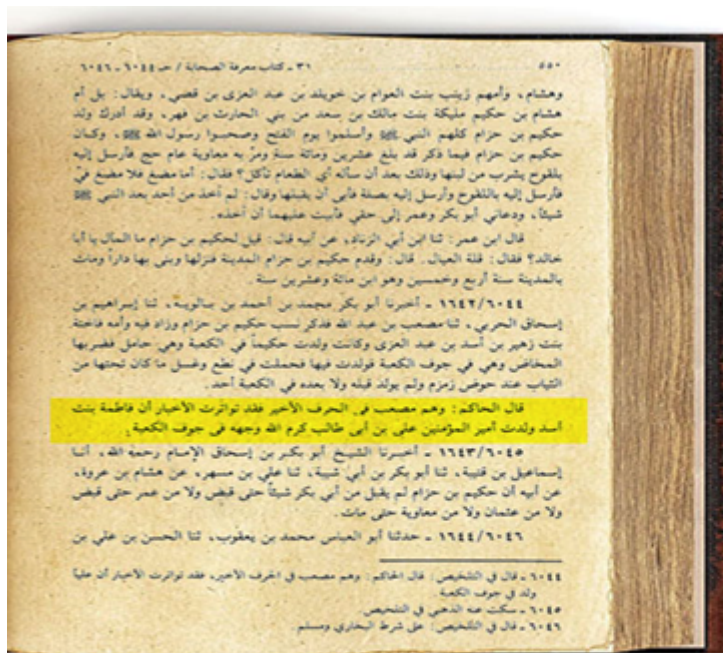 ٥٥٠ ٣١ ـ كتاب معرفة الصحابة / حـ ٦٠٤٤ ـ ٦٠٤٦
وهشام ، وأمهم زينب بنت العوام بن خويلد بن عبد العزى بن قصي ، ويقال : بل أم
هشام بن حكيم مليكة بنت مالك بن سعد من بني الحارث بن فهر ، وقد أدرك ولد
حكيم بن حزام كلهم النبي ﷺ وأسلموا يوم الفتح وصحبوا رسول الله ﷺ ، وكان
حكيم بن حزام فيما ذكر قد بلغ عشرين ومائة سنة ومرّ به معاوية عام حج فأرسل إليه
بلقوح يشرب من لبنها وذلك بعد أن سأله أي الطعام تأكل ؟ فقال : أما مضغ فلا مضغ فيّ
فأرسل إليه باللقوح وأرسل إليه بصلة فأبى أن يقبلها وقال : لم آخذ من أحد بعد النبي ﷺ
شيئاً ، ودعاني أبو بكر وعمر إلى حقي فأبيت عليهما أن آخذه .
قال ابن عمر : ثنا ابن أبي الزناد ، عن أبيه قال : قيل لحكيم بن حزام ما المال يا أبا
خالد ؟ فقال : قلة العيال . قال : وقدم حكيم بن حزام المدينة فنزلها وبنى بها داراً ومات
بالمدينة سنة أربع وخمسين وهو ابن مائة وعشرين سنة .
١٦٤٢/٦٠٤٤ ـ أخبرنا أبو بكر محمد بن أحمد بن بالويه ، ثنا إبراهيم بن
إسحاق الحربي ، ثنا مصعب بن عبد الله فذكر نسب حكيم بن حزام وزاد فيه وأمه فاختة
بنت زهير بن أسد بن عبد العزى وكانت ولدت حكيماً في الكعبة وهي حامل فضربها
المخاض وهي في جوف الكعبة فولدت فيها فحملت في نطع وغسل ما كان تحتها من
الثياب عند حوض زمزم ولم يولد قبله ولا بعده في الكعبة أحد .
قال الحاكم : وهم مصعب في الحرف الأخير فقد تواترت الأخبار أن فاطمة بنت
أسد ولدت أمير المؤمنين علي بن أبي طالب كرم الله وجهه في جوف الكعبة .
١٦٤٣/٦٠٤٥ ـ أخبرنا الشيخ أبو بكر بن إسحاق الإمام رحمه الله ، أنبا
إسماعيل بن قتيبة ، ثنا أبو بكر بن أبي شيبة ، ثنا علي بن مسهر ، عن هشام بن عروة ،
عن أبيه أن حكيم بن حزام لم يقبل من أبي بكر شيئاً حتى قبض ولا من عمر حتى قبض
ولا من عثمان ولا من معاوية حتى مات .
١٦٤٤/٦٠٤٦ ـ حدثنا أبو العباس محمد بن يعقوب ، ثنا الحسن بن علي بن
٦٠٤٤ ـ قال في التلخيص : قال الحاكم : وهم مصعب في الحرف الأخير ، فقد تواترت الأخبار أن علياً
ولد في جوف الكعبة .
٦٠٤٥ ـ سكت عنه الذهبي في التلخيص .
٦٠٤٦ ـ قال في التلخيص : على شرط البخاري ومسلم .